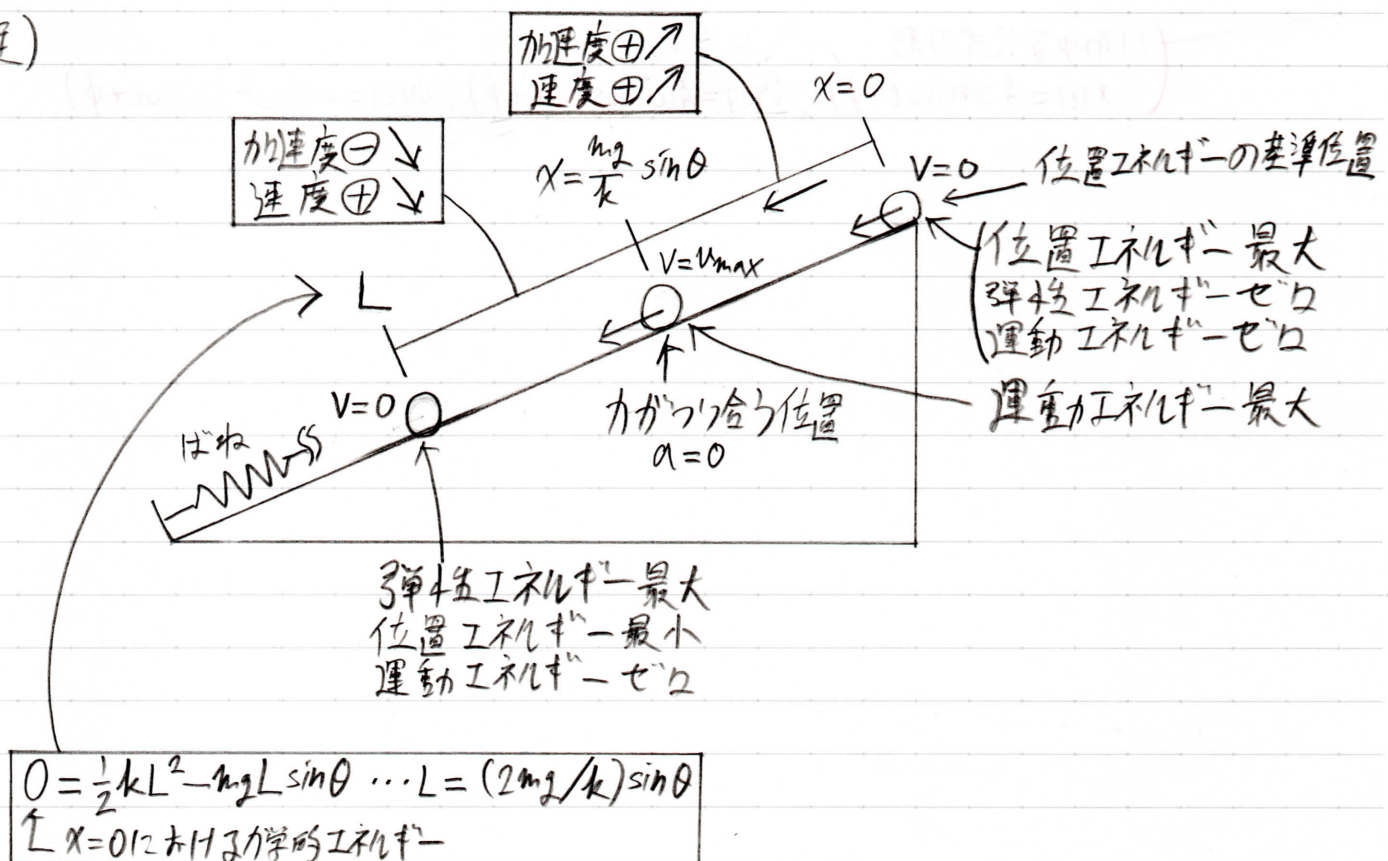 加速度⊕↗
速度⊕↗
x=0
加速度⊖↘
速度⊕↘
x=mg/k sinθ
V=0
位置エネルギーの基準位置
位置エネルギー最大
弾性エネルギーゼロ
運動エネルギーゼロ
V=Vmax
L
V=0
力がつり合う位置
a=0
運動エネルギー最大
ばね
弾性エネルギー最大
位置エネルギー最小
運動エネルギーゼロ
0=1/2kL²-mgLsinθ …L=(2mg/k)sinθ
x=0における力学的エネルギー